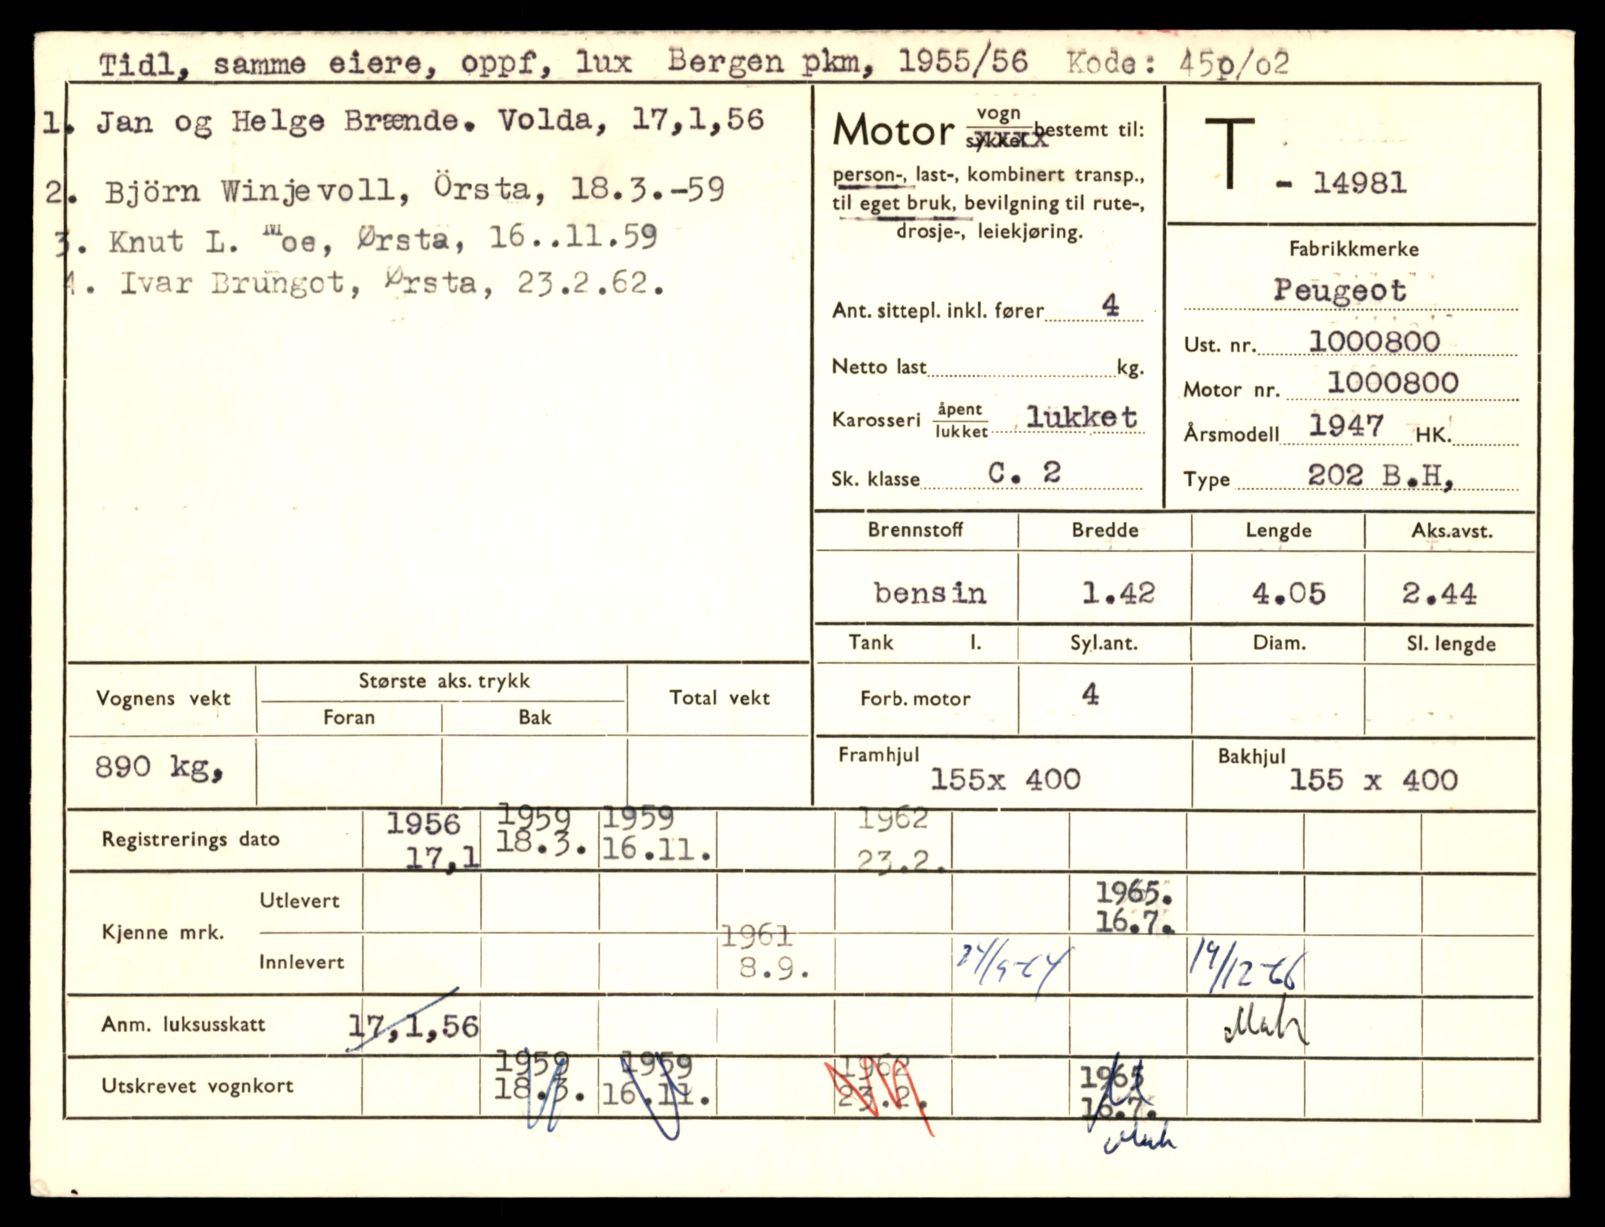 Tidl, samme eiere, oppf, lux Bergen pkm, 1955/56 Kode: 45p/o2
1. Jan og Helge Brænde. Volda, 17,1,56
2. Björn Winjevoll, Örsta, 18.3.-59
3. Knut L. Moe, Ørsta, 16..11.59
4. Ivar Brungot, Ørsta, 23.2.62.
Motor vogn sykkel bestemt til:
person-, last-, kombinert transp.,
til eget bruk, bevilgning til rute-,
drosje-, leiekjøring.
Ant. sittepl. inkl. fører 4
Netto last kg.
Karosseri åpent lukket lukket
Sk. klasse C. 2
T - 14981
Fabrikkmerke
Peugeot
Ust. nr. 1000800
Motor nr. 1000800
Årsmodell 1947 HK.
Type 202 B.H,
Brennstoff Bredde Lengde Aks.avst.
bensin 1.42 4.05 2.44
Tank l. Syl.ant. Diam. Sl. lengde
Forb. motor 4
Framhjul Bakhjul
155x 400 155 x 400
Vognens vekt Største aks. trykk Total vekt
Foran Bak
890 kg,
Registrerings dato 1956 1959 1959 1962
17,1 18.3. 16.11. 23.2.
Kjenne mrk.
Utlevert 1965.
16.7.
Innlevert 1961
8.9. 24/9-64 19/12-66
Anm. luksusskatt 17,1,56
Utskrevet vognkort 1959 1959 1962 1965
18.3. 16.11. 23.2. 16.7.